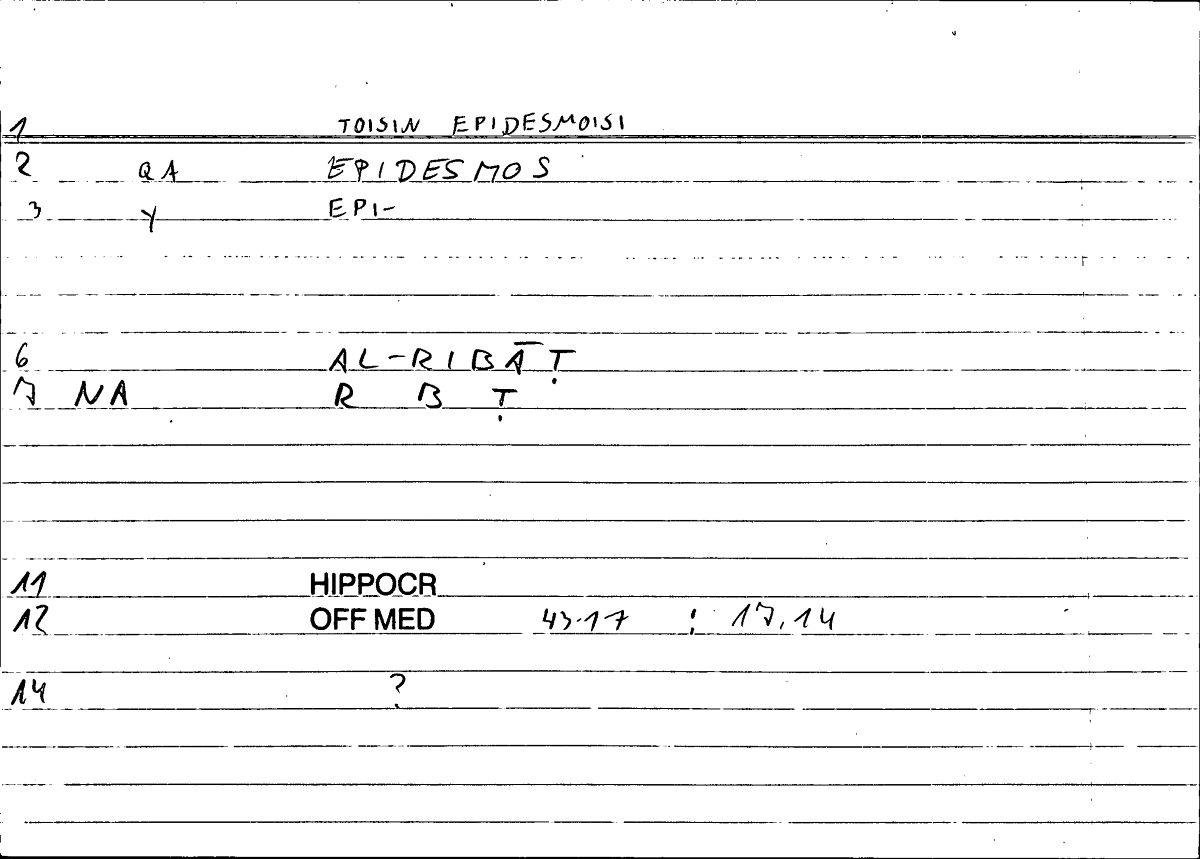 1 TOISIN EPIDESMOISI
2 QA EPIDESMOS
3 Y EPI-
6 AL-RIBĀṬ
7 NA R B Ṭ
11 HIPPOCR
12 OFF MED 43.17 : 17.14
14 ?